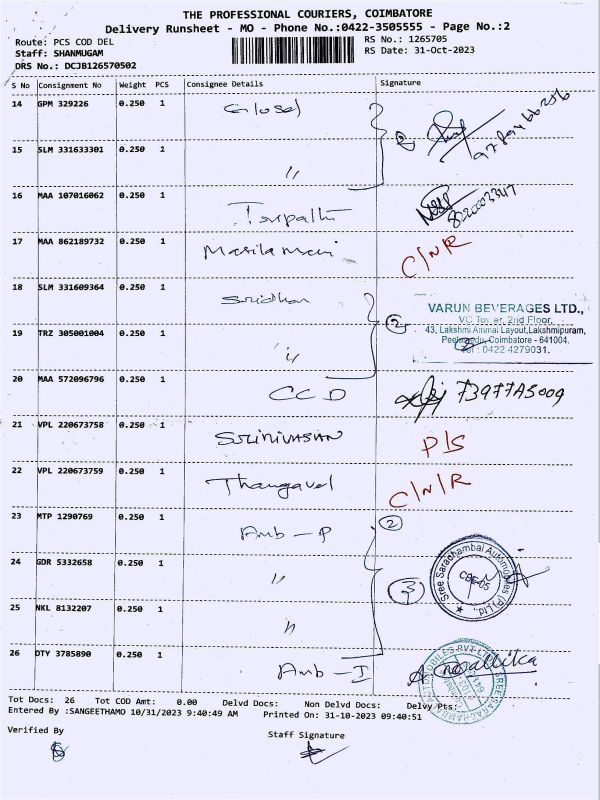 THE PROFESSIONAL COURIERS, COIMBATORE
Delivery Runsheet - MO - Phone No.:0422-3505555 - Page No.:2
Route: PCS COD DEL
RS No.: 1265705
Staff: SHANMUGAM
RS Date: 31-Oct-2023
DRS No.: DCJB126570502
S No Consignment No Weight PCS Consignee Details Signature
14 GPM 329226 0.250 1 Closed 2
9789466256
15 SLM 331633301 0.250 1 "
16 MAA 107016062 0.250 1 Tirupathi 8220003347
17 MAA 862189732 0.250 1 Masilamani C/N/R
18 SLM 331609364 0.250 1 Sridhar 2
VARUN BEVERAGES LTD.,
VC Tower, 2nd Floor,
43, Lakshmi Ammal Layout,Lakshmipuram,
Peelamedu, Coimbatore - 641004.
Tel : 0422 4279031.
19 TRZ 305001004 0.250 1 "
20 MAA 572096796 0.250 1 CCD 73977A5009
21 VPL 220673758 0.250 1 SRINIVASAN P/S
22 VPL 220673759 0.250 1 Thangavel C/N/R
23 MTP 1290769 0.250 1 Amb - P 2
24 GDR 5332658 0.250 1 " 3
Sree Sarachambal Automobiles (P) Ltd.
CBE-05
25 NKL 8132207 0.250 1 "
26 DTY 3785890 0.250 1 Amb - I Mallika
Tot Docs: 26 Tot COD Amt: 0.00 Delvd Docs: Non Delvd Docs: Delvy Pts:
Entered By :SANGEETHAMO 10/31/2023 9:40:49 AM Printed On: 31-10-2023 09:40:51
Verified By
Staff Signature